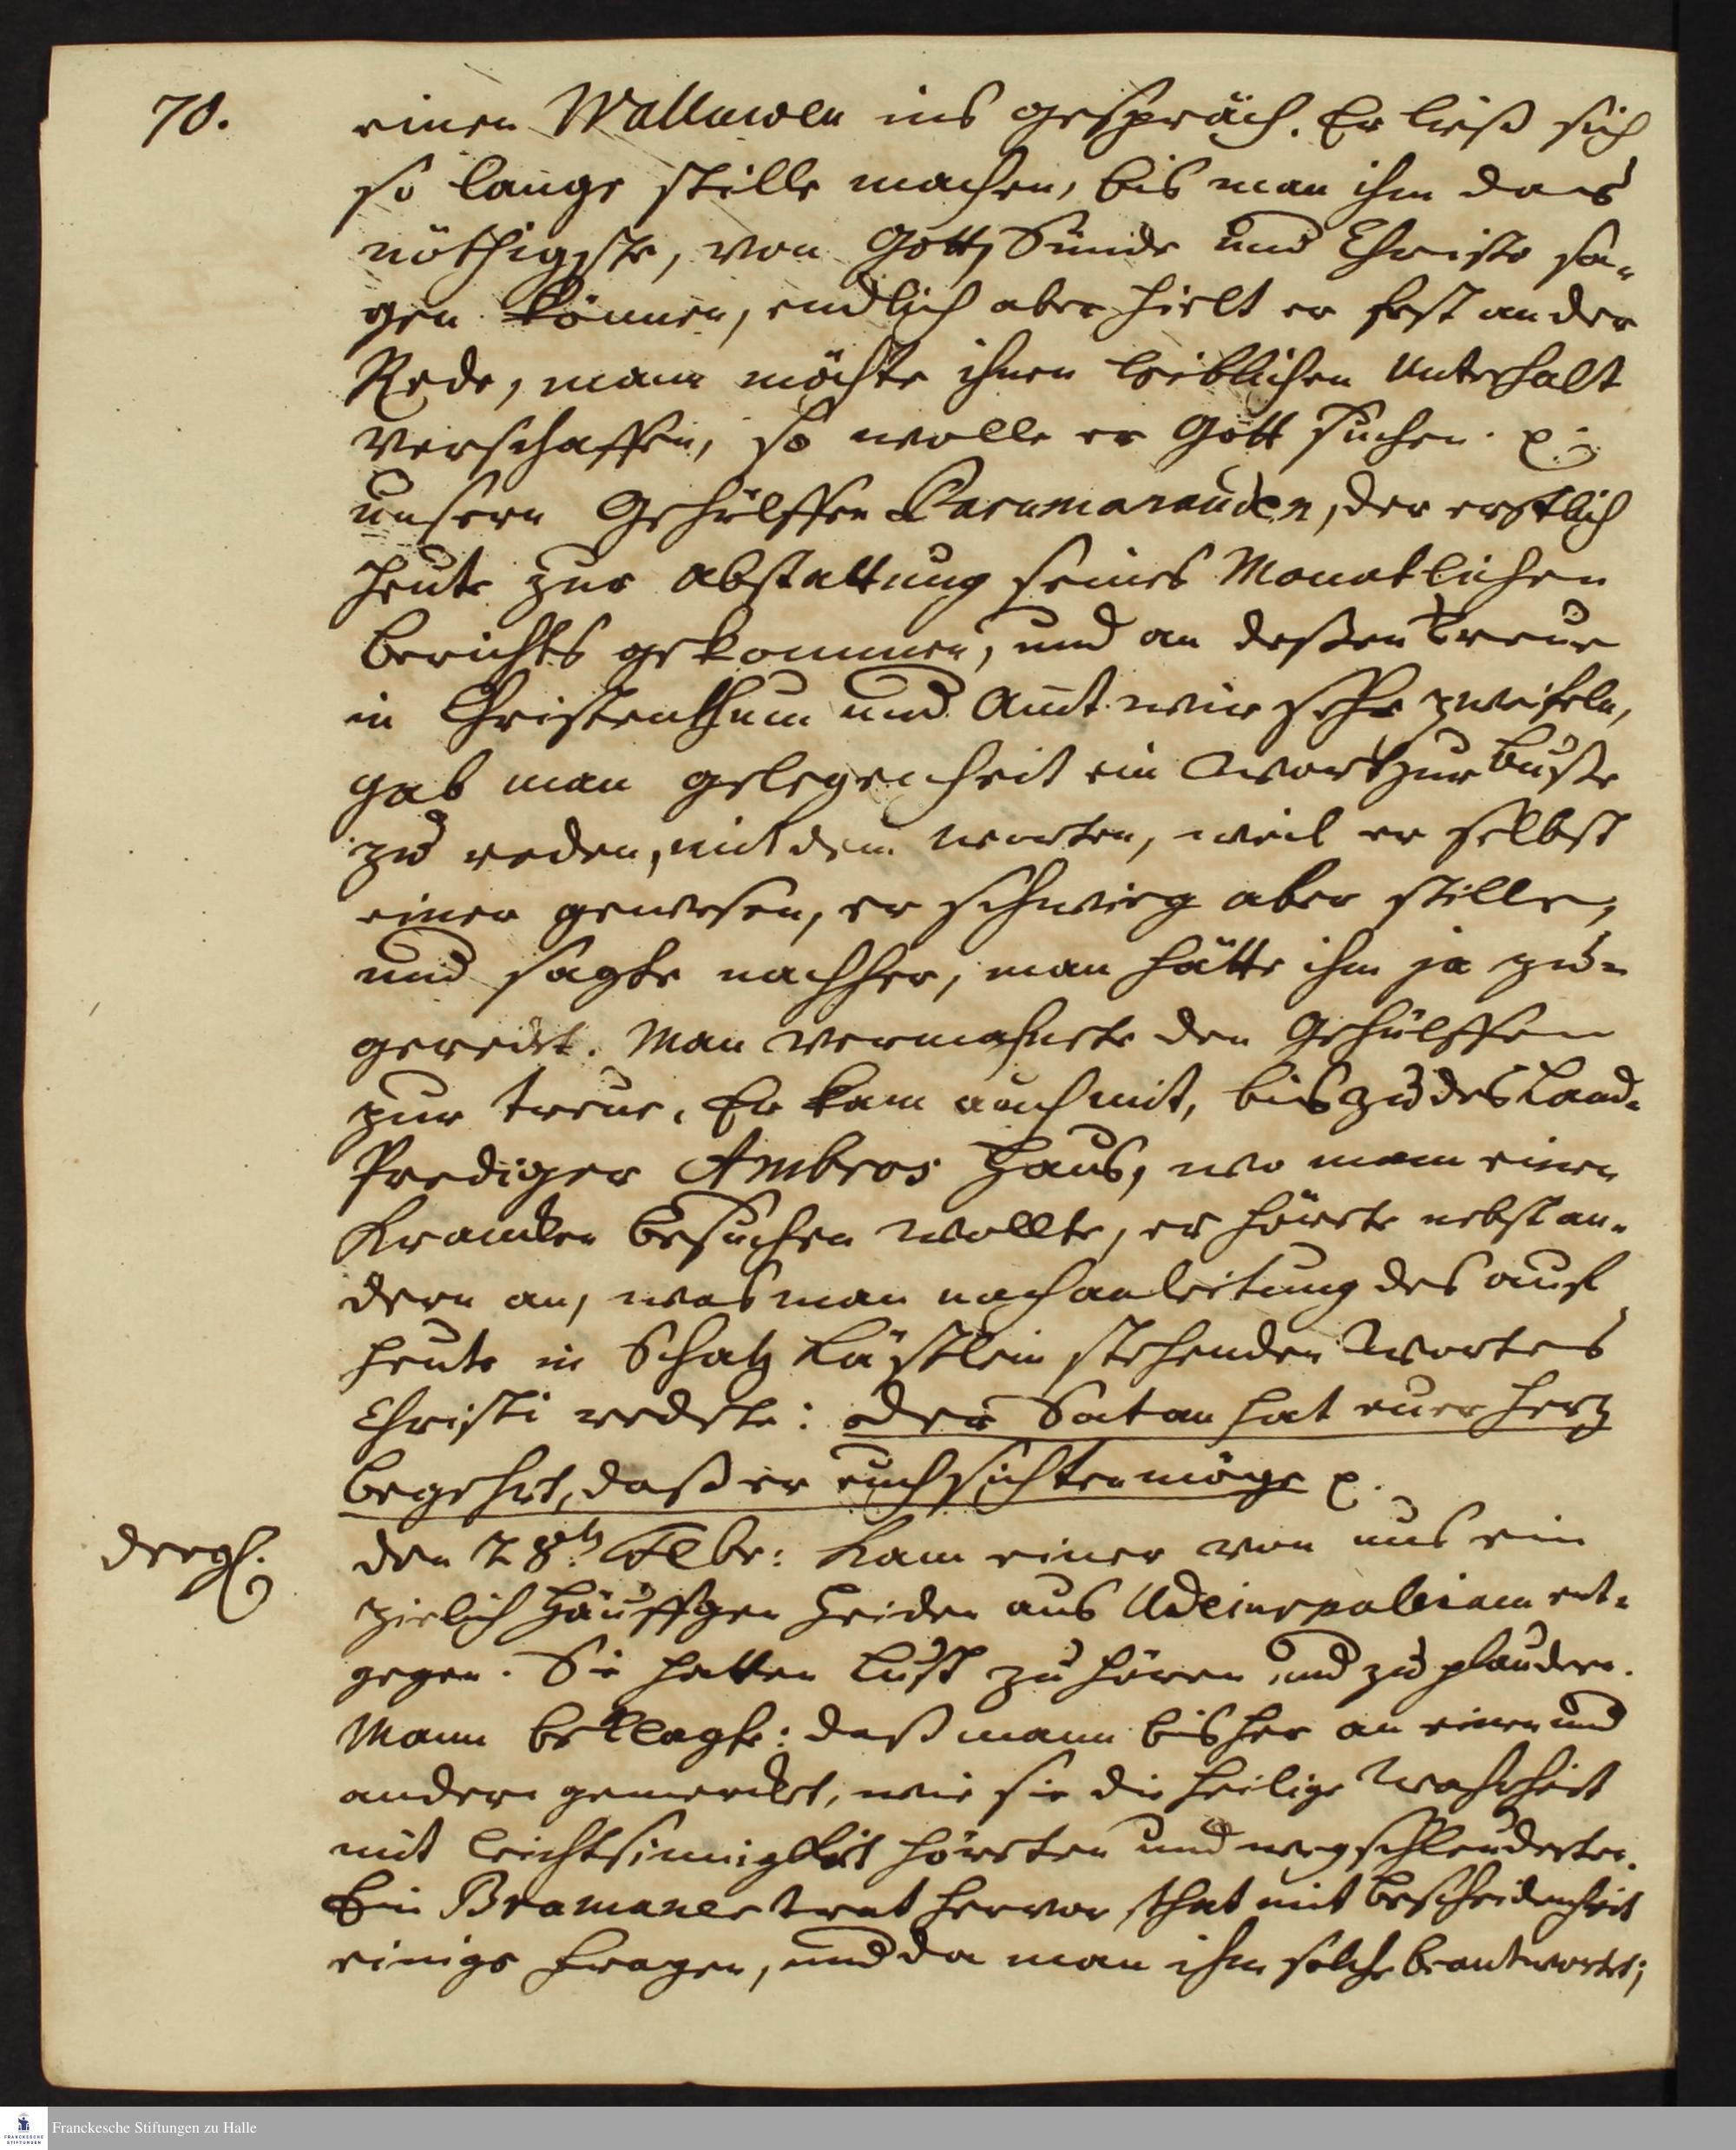 70.
einen Walluwen ins gespräch. Er ließ sich
so lange stille machen, bis man ihm das
nöthigste, von Gott, Sünde und Christo sa-
gen können, endlich aber hielt er fest an der
Rede, mann möchte ihnen leiblichen Unterhalt
verschaffen, so wolle er Gott suchen. p.
unsern Gehülffen, der erstlich
heute zur abstattung seines Monatlichen
berichts gekommen, und an deßen Treue
in Christenthum und Amt wir sehr zweifeln,
gab man gelegenheit ein Wort zur Buße
zu reden, mit dem, weil er selbst
einer gewesen, er schwieg aber stille,
und sagte nachher, man hätte ihm ja zu-
geredet. Man vermahnete den Gehülffen
zur treue. Er kam auch mit, bis zu des Land-
Prediger Ambros Hauß, wo mann einen
Krancken besuchen wollte, er hörete nebst an-
dern an, was man nach anleitung des auf
heute in Schatz Kästlein stehenden Wortes
Christi redete: der Satan hat euer hertz
begehrt, daß er euch sichten möge p.
dergl.
den 28t Febr: Kam einer von uns ein
zielich Häuffgen Heiden aus Udeinrpaleiam ent-
gegen. Sie hatten Lust zu hören und zu plaudern.
Mann beklagte: daß mann bisher an einen und
andern gemerckt, wie sie die heilige Wahrheit
mit leichtsinnigkeit hörten und wegschleuderten.
Ein Bramaner trat hervor, that mit bescheidenheit
einige Fragen, und da man ihm solche beantwortet;
Franckesche Stiftungen zu Halle